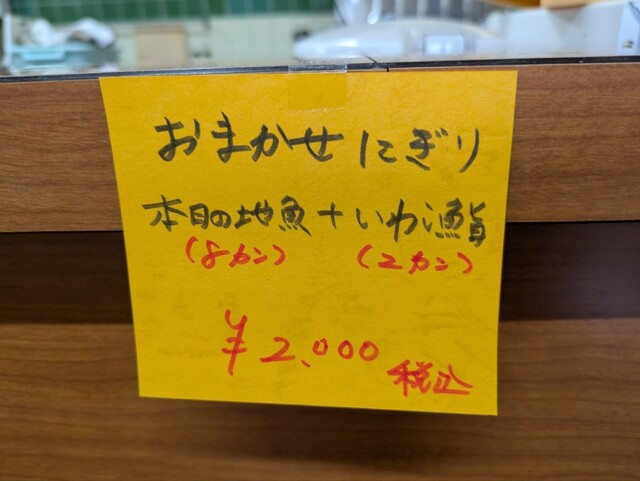 おまかせにぎり
本日の地魚+いわ漁鮨
(8カン) (2カン)
¥2,000 税込